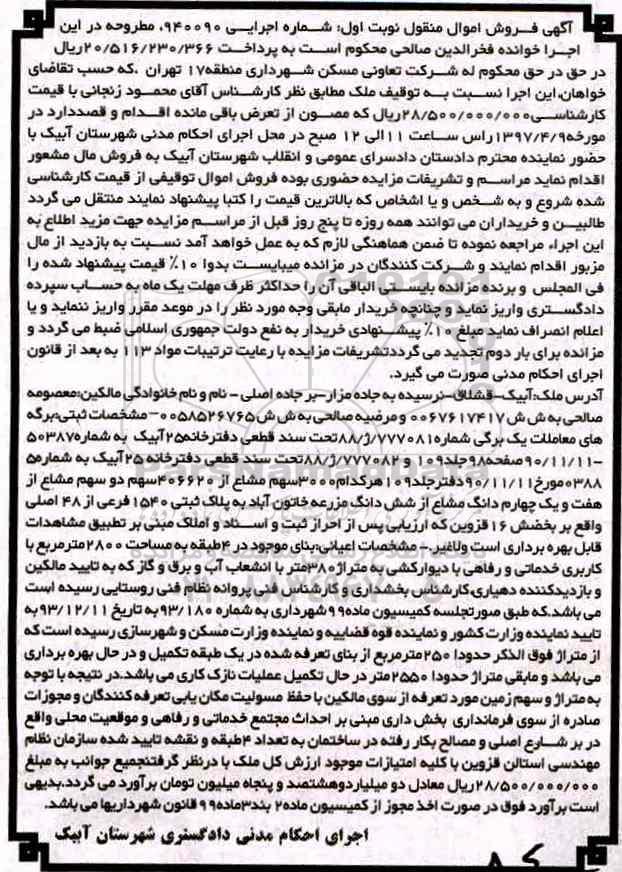 آگهی فروش اموال منقول نوبت اول: شماره اجرایی ۹۴۰۰۹۰، مطروحه در این
اجرا خوانده فخرالدین صالحی محکوم است به پرداخت ۲۰/۵۱۶/۲۳۰/۳۶۶ریال
در حق در حق محکوم له شرکت تعاونی مسکن شهرداری منطقه۱۷ تهران ،که حسب تقاضای
خواهان،این اجرا نسبت به توقیف ملک مطابق نظر کارشناس آقای محمود زنجانی با قیمت
کارشناسی۲۸/۵۰۰/۰۰۰/۰۰۰ریال که مصون از تعرض باقی مانده اقدام و قصددارد در
مورخه۱۳۹۷/۴/۹راس ساعت ۱۱الی ۱۲ صبح در محل اجرای احکام مدنی شهرستان آبیک با
حضور نماینده محترم دادستان دادسرای عمومی و انقلاب شهرستان آبیک به فروش مال مشعور
اقدام نماید مراسم و تشریفات مزایده حضوری بوده فروش اموال توقیفی از قیمت کارشناسی
شده شروع و به شخص و یا اشخاص که بالاترین قیمت را کتبا پیشنهاد نمایند منتقل می گردد
طالبین و خریداران می توانند همه روزه تا پنج روز قبل از مراسم مزایده جهت مزید اطلاع به
این اجراء مراجعه نموده تا ضمن هماهنگی لازم که به عمل خواهد آمد نسبت به بازدید از مال
مزبور اقدام نمایند و شرکت کنندگان در مزانده میبایست بدوا ۱۰٪ قیمت پیشنهاد شده را
فی المجلس و برنده مزانده بایستی الباقی آن را حداکثر ظرف مهلت یک ماه به حساب سپرده
دادگستری واریز نماید و چنانچه خریدار مابقی وجه مورد نظر را در موعد مقرر واریز ننماید و یا
اعلام انصراف نماید مبلغ ۱۰٪ پیشنهادی خریدار به نفع دولت جمهوری اسلامی ضبط می گردد و
مزانده برای بار دوم تجدید می گرددتشریفات مزایده با رعایت ترتیبات مواد ۱۱۳ به بعد از قانون
اجرای احکام مدنی صورت می گیرد.
آدرس ملک:آبیک-قشلاق-نرسیده به جاده مزار-بر جاده اصلی - نام و نام خانوادگی مالکین:معصومه
صالحی به ش ش ۰۰۶۷۶۱۷۴۱۷ و مرضیه صالحی به ش ش ۰۰۵۸۵۲۶۷۶۵- مشخصات ثبتی:برگه
های معاملات یک برگی شماره۷۷۷۰۸۱/ژ/۸۸تحت سند قطعی دفترخانه۲۵آبیک به شماره۵۰۳۸۷
-۹۰/۱۱/۱۱صفحه۹۸جلد۱۰۹ و ۷۷۷۰۸۲/ژ/۸۸تحت سند قطعی دفترخانه ۲۵آبیک به شماره۵
۰۳۸۸مورخ۹۰/۱۱/۱۱دفترجلد۱۰۹هرکدام۳۰۰۰سهم مشاع از ۴۰۶۶۲۰سهم دو سهم مشاع از
هفت و یک چهارم دانگ مشاع از شش دانگ مزرعه خاتون آباد به پلاک ثبتی ۱۵۴۰ فرعی از ۴۸ اصلی
واقع بر بخضش ۱۶ قزوین که ارزیابی پس از احراز ثبت و اسناد و املاک مبنی بر تطبیق مشاهدات
قابل بهره برداری است ولاغیر.- مشخصات اعیانی:بنای موجود در ۴طبقه به مساحت ۲۸۰۰مترمربع با
کاربری خدماتی و رفاهی با دیوارکشی به متراژ۳۸۰متر با انشعاب آب و برق و گاز که به تایید مالکین
و بازدیدکننده دهیاری،کارشناس بخشداری و کارشناس فنی پروانه نظام فنی روستایی رسیده است
می باشد.که طبق صورتجلسه کمیسیون ماده۹۹شهرداری به شماره ۹۳/۱۸۰به تاریخ ۹۳/۱۲/۱۱ به
تایید نماینده وزارت کشور و نماینده قوه قضاییه و نماینده وزارت مسکن و شهرسازی رسیده است که
از متراژ فوق الذکر حدودا ۲۵۰مترمربع از بنای تعرفه شده در یک طبقه تکمیل و در حال بهره برداری
می باشد و مابقی متراژ حدودا ۲۵۵۰متر در حال تکمیل عملیات نازک کاری می باشد.در نتیجه با توجه
به متراژ و سهم زمین مورد تعرفه از سوی مالکین با حفظ مسولیت مکان یابی تعرفه کنندگان و مجوزات
صادره از سوی فرمانداری بخش داری مبنی بر احداث مجتمع خدماتی و رفاهی و موقعیت محلی واقع
در بر شارع اصلی و مصالح بکار رفته در ساختمان به تعداد ۴طبقه و نقشه تایید شده سازمان نظام
مهندسی استالن قزوین با کلیه امتیازات موجود ارزش کل ملک با درنظر گرفتنجمیع جوانب به مبلغ
۲۸/۵۰۰/۰۰۰/۰۰۰ریال معادل دو میلیاردوهشتصد و پنجاه میلیون تومان برآورد می گردد.بدیهی
است برآورد فوق در صورت اخذ مجوز از کمیسیون ماده۲ بند۳ماده۹۹قانون شهرداریها می باشد.
اجرای احکام مدنی دادگستری شهرستان آبیک
ParsNamadData